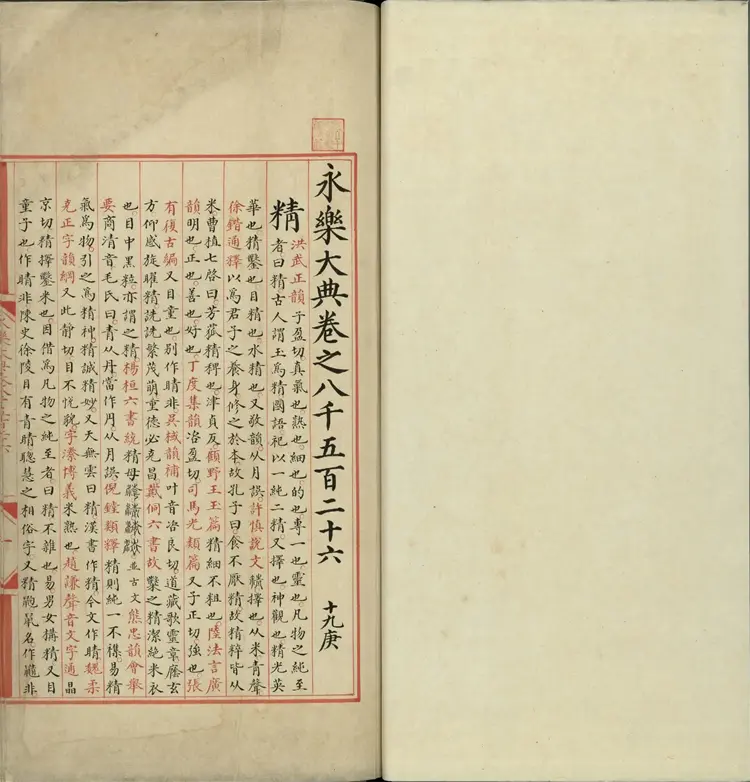 永樂大典卷之八千五百二十六 十九庚
精
洪武正韻子盈切真氣也熟也細也的也專一也靈也凡物之純至
者曰精古人謂玉為精國語祀以一純二精又擇也神觀也精光英
華也精鑿也目精也水精也又敬韻从月誤許慎說文擇也从米青聲
徐鍇通釋以為君子之養身修之於本故孔子曰食不厭精故精粹皆从
米曹植七啓曰芳菰精稗也津貞反顧野王玉篇精細不粗也陸法言廣
韻明也正也善也好也丁度集韻咨盈切司馬光類篇又子正切強也張
有復古編又目童也别作睛非吳棫韻補叶音咨良切道藏歌靈章庬玄
方仰感旋曜精詵詵繁茂萌重德必克昌戴侗六書故鑿之精潔絶米衣
也目中黑粒亦謂之精楊桓六書統精母並古文熊忠韻會舉
要商清音毛氏曰青从丹當作円从月誤倪鏜類釋精則純一不襍易精
氣為物引之為精神精誠精妙又天無雲曰精漢書作精今文作晴魏柔
克正字韻綱又此静切目不悅貌字潫博義米熟也趙謙聲音文字通晶
京切精擇鑿米也因借為凡物之純至者曰精不雜也易男女搆精又目
童子也作睛非陳史徐陵目有青睛聰慧之相俗字又精鼠名作非